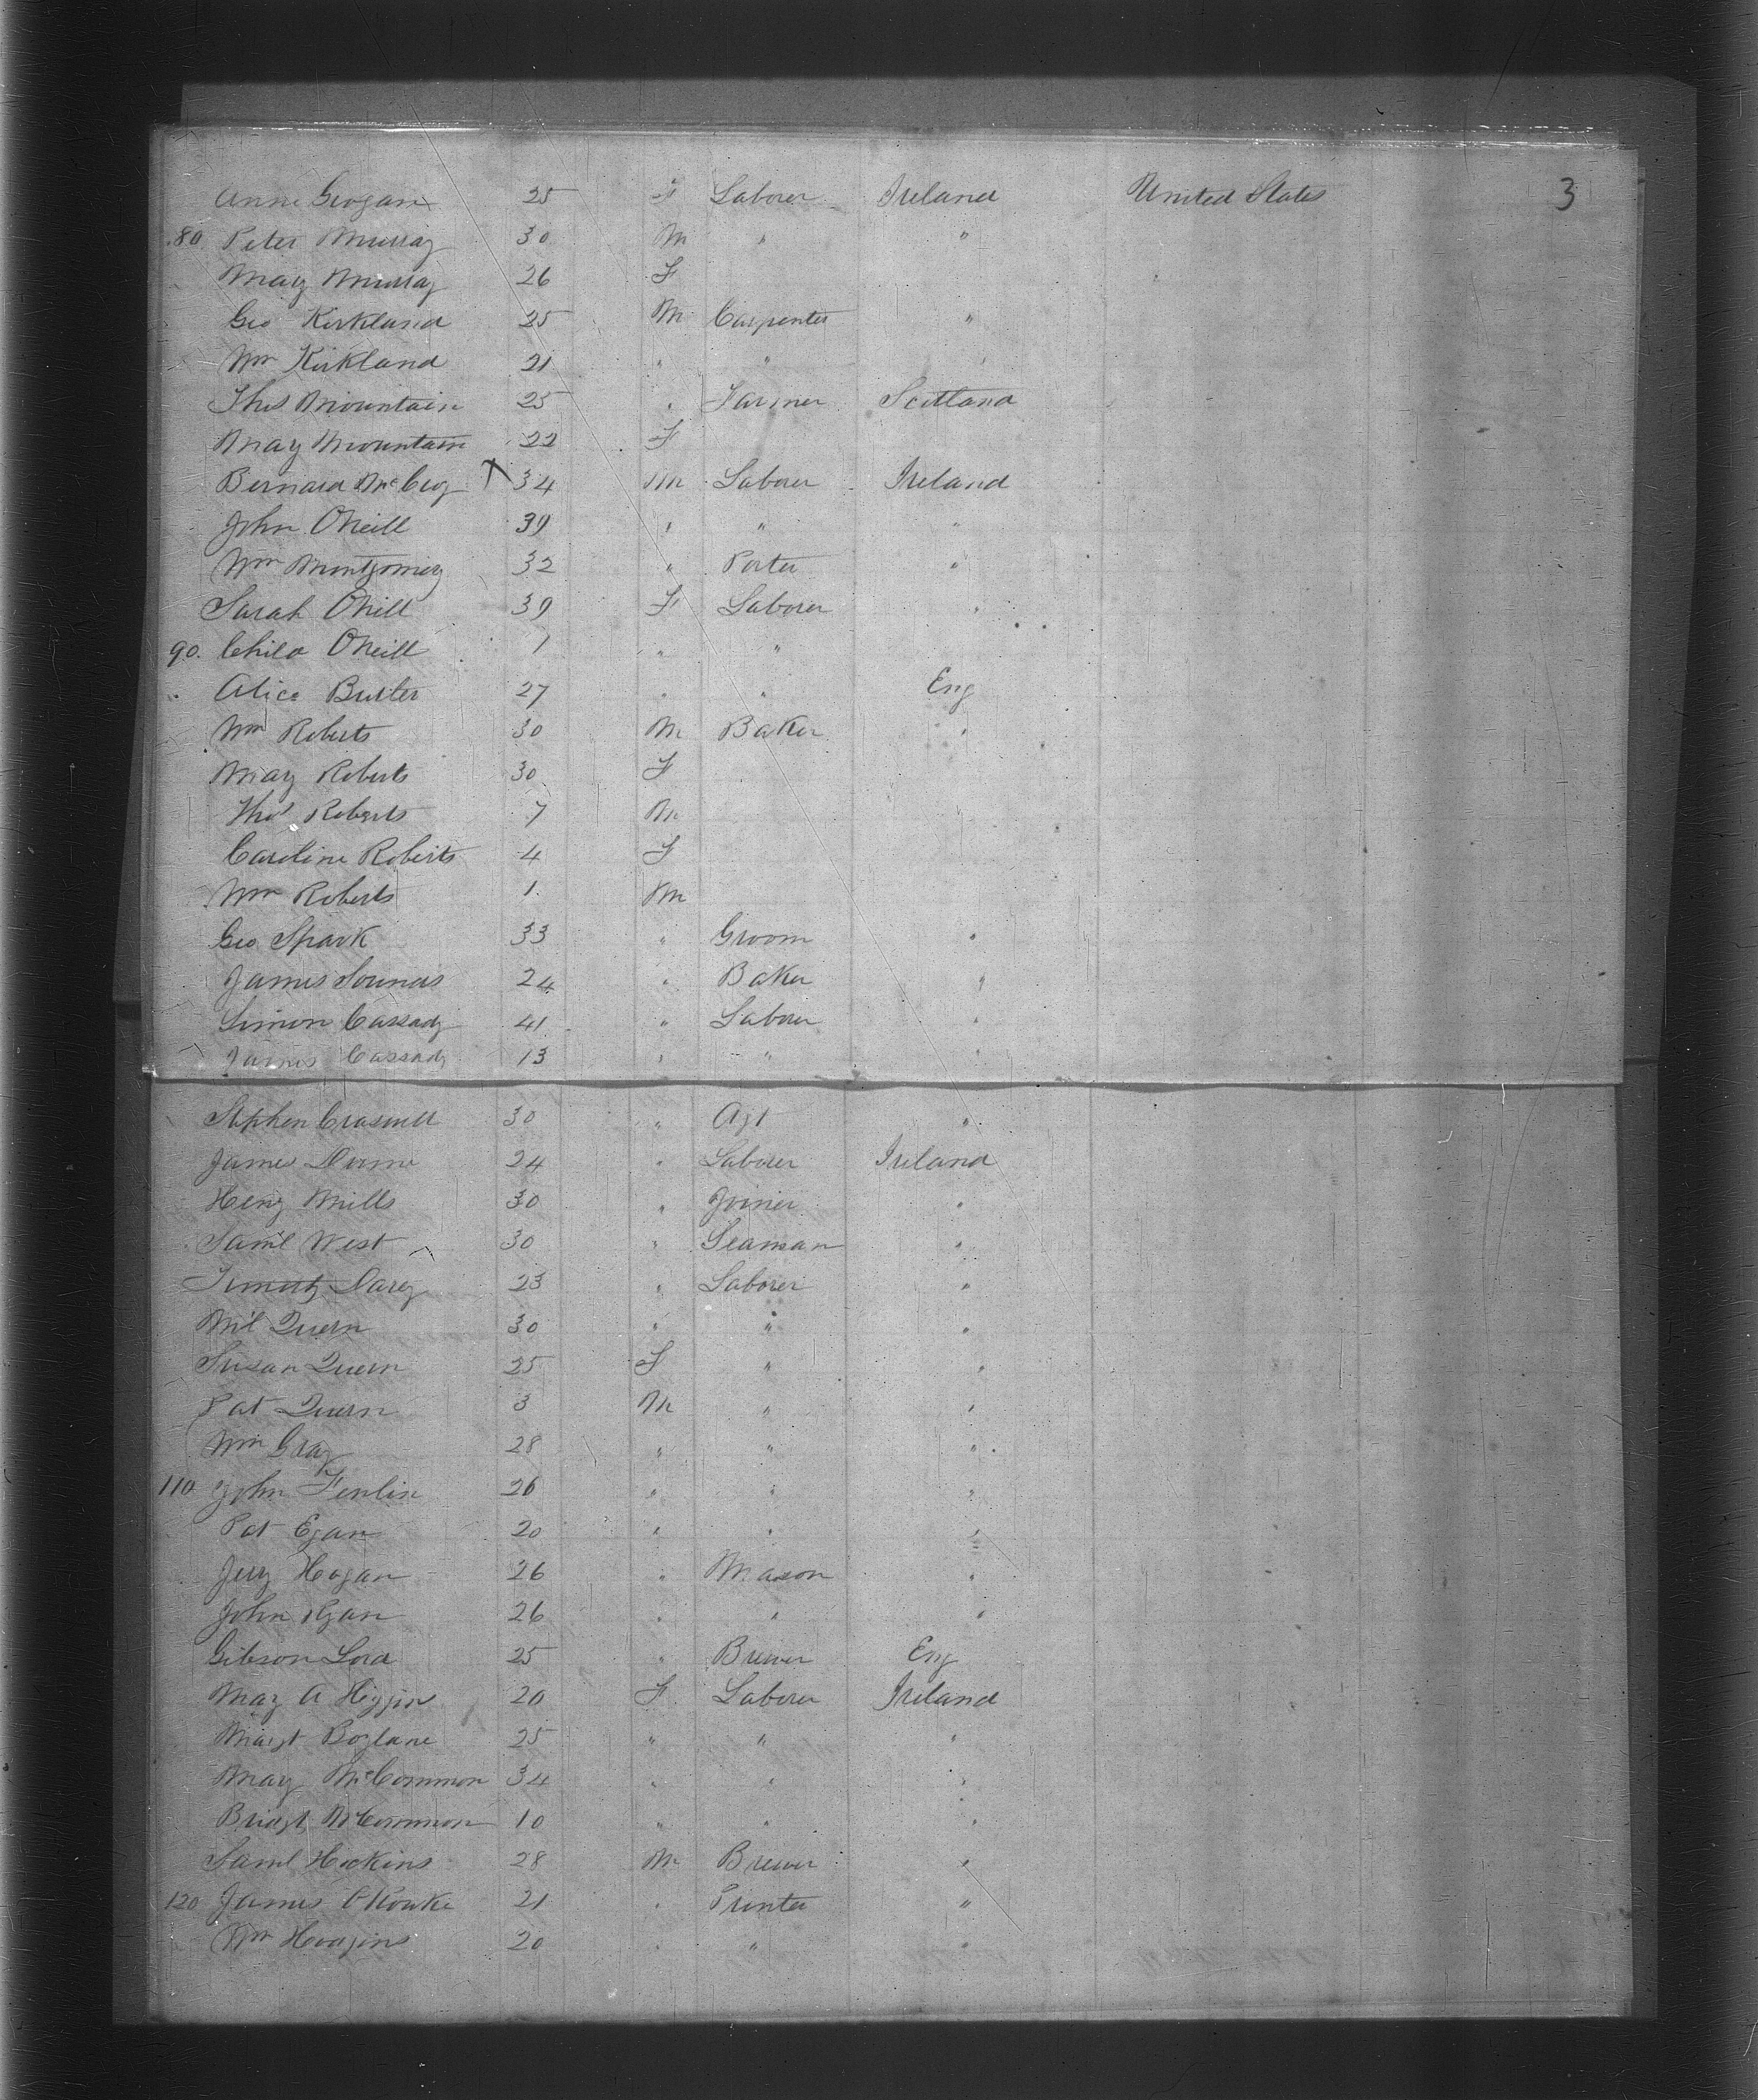 Anne Grogan 25 F Laborer Ireland United States 3
80 Peter Murray 30 M " "
Mary Murray 26 F
Geo Kirkland 25 M Carpenter "
Wm Kirkland 21 " " "
Thos Mountain 25 " Farmer Scotland
Mary Mountain 22 F
Bernard McCroy X 34 M Laborer Ireland
John ONeill 39 " " "
Wm Montgomery 32 " Porter "
Sarah ONeill 39 F Laborer "
90. Child ONeill 1 " "
Alice Butler 27 " " Eng
Wm Roberts 30 M Baker "
Mary Roberts 30 F
Thos Roberts 7 M
Caroline Roberts 4 F
Wm Roberts 1 M
Geo Spark 33 " Groom "
James 24 " Baker "
Simon Cassady 41 " Laborer "
James Cassady 13 " " "
Stephen Craswell 30 " Agt "
James 24 " Laborer Ireland
Henry Mills 30 " Joiner "
Saml West 30 " Seaman "
Timothy Darcy 23 " Laborer "
Ml Quern 30 " " "
Susan Quern 25 F " "
Pat Quern 3 M " "
Wm Gray 28 " " "
110 John Fenlin 26 " " "
Pat Egan 20 " " "
Jerry Hogan 26 " Mason "
John Ryan 26 " " "
Gibson Lord 25 " Brewer Eng
Mary A Higgins 20 F Laborer Ireland
Margt Boylane 25 " " "
Mary McCommon 34 " " "
Bridgt McCommon 10 " " "
Saml Hockins 28 M Brewer "
120 James ORourke 21 " Printer "
Wm Hodgins 20 " " "